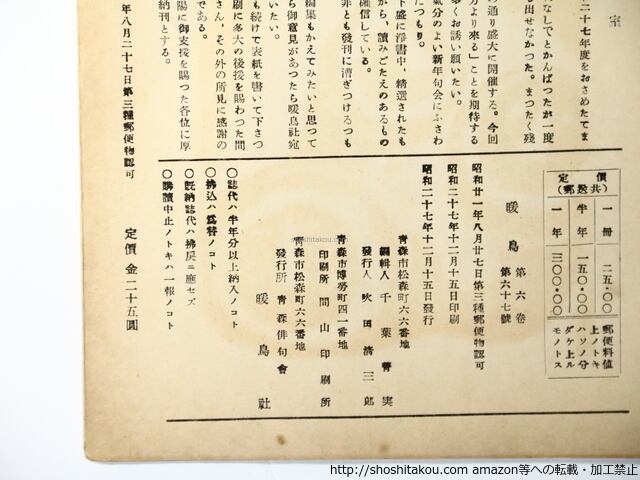 室
二十七年度をおさめたてま
なしでとかんばつたが一度
も出せなかつた。まつたく残
の通り盛大に開催する。今回
分より來る」ことを期待する
多くお誘い願いたい。
氣分のよい新年句会にふさわ
たつもり。
下盛に淨書中、精選されたも
から、讀みごたえのあるもの
確信している。
非とも發刊に漕ぎつけるつも
いたい。
編集もかえてみたいと思つて
ら御意見があつたら暖鳥社宛
も続けて表紙を書いて下さつ
刷に多大の後援を賜わつた間
さん、その外の所見に感謝の
である。
陽に御支援を賜つた各位に厚
納刊とする。
年八月二十七日第三種郵便物認可
定價 金二十五圓
定價
(郵送共)
一冊 二五・〇〇
半年 一五〇・〇〇
一年 三〇〇・〇〇
郵便料値
上ノトキ
ハソノ分
ダケ上ル
モノトス
暖鳥 第六卷
第六十七號
昭和廿一年八月廿七日第三種郵便物認可
昭和二十七年十二月十五日印刷
昭和二十七年十二月十五日發行
青森市松森町六六番地
編輯人 千葉菁実
發行人 吹田清三郎
青森市博勞町四一番地
印刷所 間山印刷所
青森市松森町六六番地
發行所 青森俳句會
暖鳥社
〇誌代ハ半年分以上納入ノコト
〇拂込ハ爲替ノコト
〇既納誌代ハ拂戻ニ應セズ
〇購讀中止ノトキハ一報ノコト
shoshitakou.com
http://shoshitakou.com amazon等への転載・加工禁止